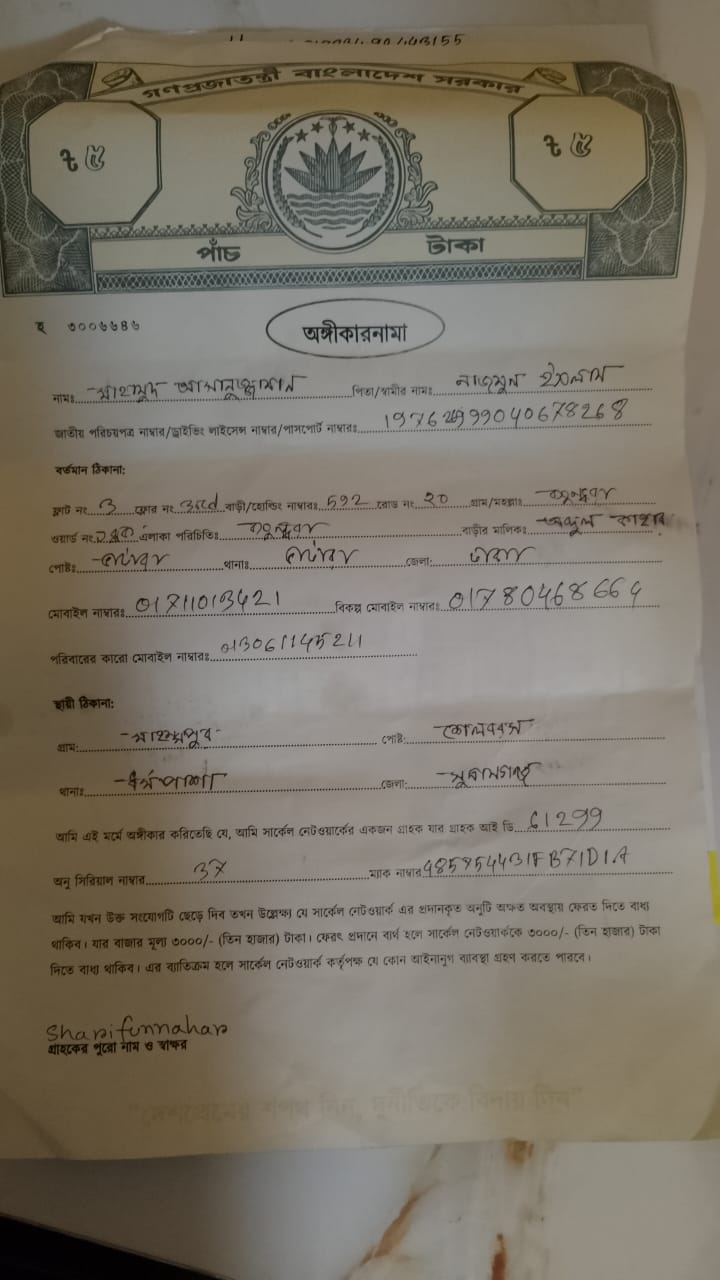 গণপ্রজাতন্ত্রী বাংলাদেশ সরকার
৳ ৫ ৳ ৫
পাঁচ টাকা
হ ৩০০৬৬৪৬
অঙ্গীকারনামা
নামঃ মাহমুদ আসাদুজ্জামান পিতা/স্বামীর নামঃ নাজমুল ইসলাম
জাতীয় পরিচয়পত্র নাম্বার/ড্রাইভিং লাইসেন্স নাম্বার/পাসপোর্ট নাম্বারঃ 1976
বর্তমান ঠিকানা:
ফ্লাট নং 3 ফ্লোর নং 3rd বাড়ী/হোল্ডিং নাম্বারঃ 592 রোড নং 20 গ্রাম/মহল্লাঃ
ওয়ার্ড নং এলাকা পরিচিতিঃ বাড়ীর মালিকঃ
পোষ্টঃ থানাঃ জেলা: ঢাকা
মোবাইল নাম্বারঃ 01711013421 বিকল্প মোবাইল নাম্বারঃ 01780468664
পরিবারের কারো মোবাইল নাম্বারঃ 013061145211
স্থায়ী ঠিকানা:
গ্রাম: পোষ্ট:
থানাঃ ধর্মপাশা জেলা: সুনামগঞ্জ
আমি এই মর্মে অঙ্গীকার করিতেছি যে, আমি সার্কেল নেটওয়ার্কের একজন গ্রাহক যার গ্রাহক আই ডি 61299
অনু সিরিয়াল নাম্বার 37 ম্যাক নাম্বার
আমি যখন উক্ত সংযোগটি ছেড়ে দিব তখন উল্লেক্ষ্য যে সার্কেল নেটওয়ার্ক এর প্রদানকৃত অনুটি অক্ষত অবস্থায় ফেরত দিতে বাধ্য
থাকিব। যার বাজার মূল্য ৩০০০/- (তিন হাজার) টাকা। ফেরৎ প্রদানে ব্যর্থ হলে সার্কেল নেটওয়ার্ককে ৩০০০/- (তিন হাজার) টাকা
দিতে বাধ্য থাকিব। এর ব্যতিক্রম হলে সার্কেল নেটওয়ার্ক কর্তৃপক্ষ যে কোন আইনানুগ ব্যাবস্থা গ্রহণ করতে পারবে।
Sharifunnahar
গ্রাহকের পুরো নাম ও স্বাক্ষর
"দেশপ্রেমের শপথ নিন, দুর্নীতিকে বিদায় দিন"